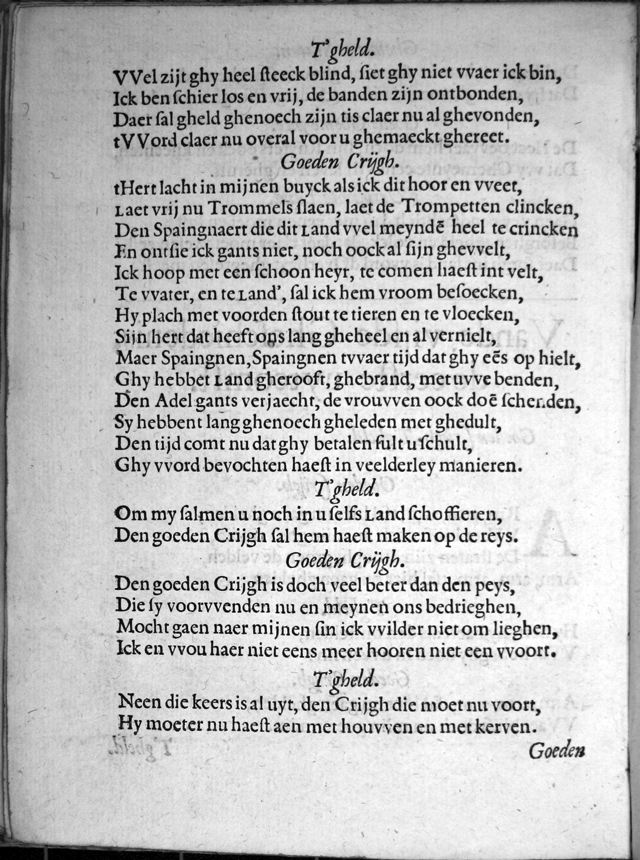 T'gheld.
VVel zijt ghy heel ſteeck blind, ſiet ghy niet vvaer ick bin,
Ick ben ſchier los en vrij, de banden zijn ontbonden,
Daer sal gheld ghenoech zijn tis claer nu al ghevonden,
tVVord claer nu overal voor u ghemaeckt ghereet.
Goeden Crijgh.
tHert lacht in mijnen buyck als ick dit hoor en vveet,
Laet vrij nu Trommels ſlaen, laet de Trompetten clincken,
Den Spaingnaert die dit Land vvel meyndē heel te crincken
En ontſie ick gants niet, noch oock al ſijn ghevvelt,
Ick hoop met een ſchoon heyr, te comen haeſt int velt,
Te vvater, en te Land', sal ick hem vroom beſoecken,
Hy plach met voorden ſtout te tieren en te vloecken,
Sijn hert dat heeft ons lang gheheel en al vernielt,
Maer Spaingnen, Spaingnen tvvaer tijd dat ghy eēs op hielt,
Ghy hebbet Land gherooft, ghebrand, met uvve benden,
Den Adel gants verjaecht, de vrouvven oock doē schenden,
Sy hebbent lang ghenoech gheleden met ghedult,
Den tijd comt nu dat ghy betalen ſult u ſchult,
Ghy vvord bevochten haeſt in veelderley manieren.
T'gheld.
Om my salmen u noch in u ſelfs Land ſchoffieren,
Den goeden Crijgh sal hem haeſt maken op de reys.
Goeden Crijgh.
Den goeden Crijgh is doch veel beter dan den peys,
Die ſy voorvvenden nu en meynen ons bedrieghen,
Mocht gaen naer mijnen ſin ick vvilder niet om lieghen,
Ick en vvou haer niet eens meer hooren niet een vvoort.
T'gheld.
Neen die keers is al uyt, den Crijgh die moet nu voort,
Hy moeter nu haeſt aen met houvven en met kerven.
Goeden